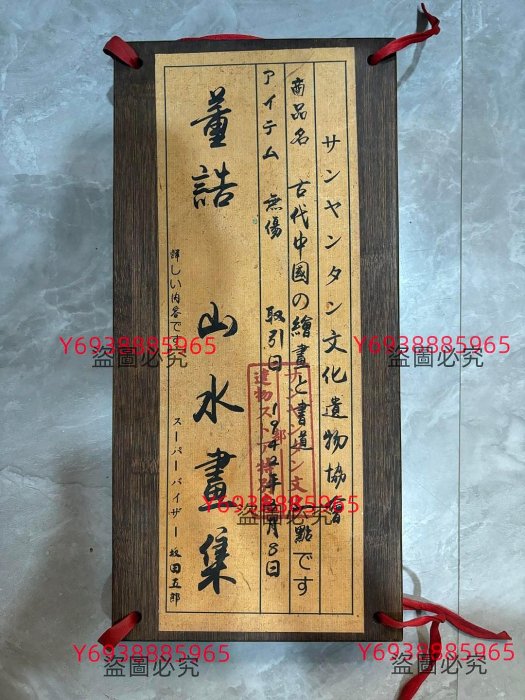 サンヤンタン文化遺物協會
商品名 古代中國の繪畫と書道 一點です
アイテム 無傷 取引日 1942年 月8日
董誥 山水畫集
詳しい内容です。 スーパーバイザー 坂田五郎
サンヤンタン文
遺物ストア特別
Y6938885965
盜圖必究
Y6938885965
盜圖必究
Y6938885965
盜圖必究
Y6938885965
盜圖必究
Y6938885965
盜圖必究